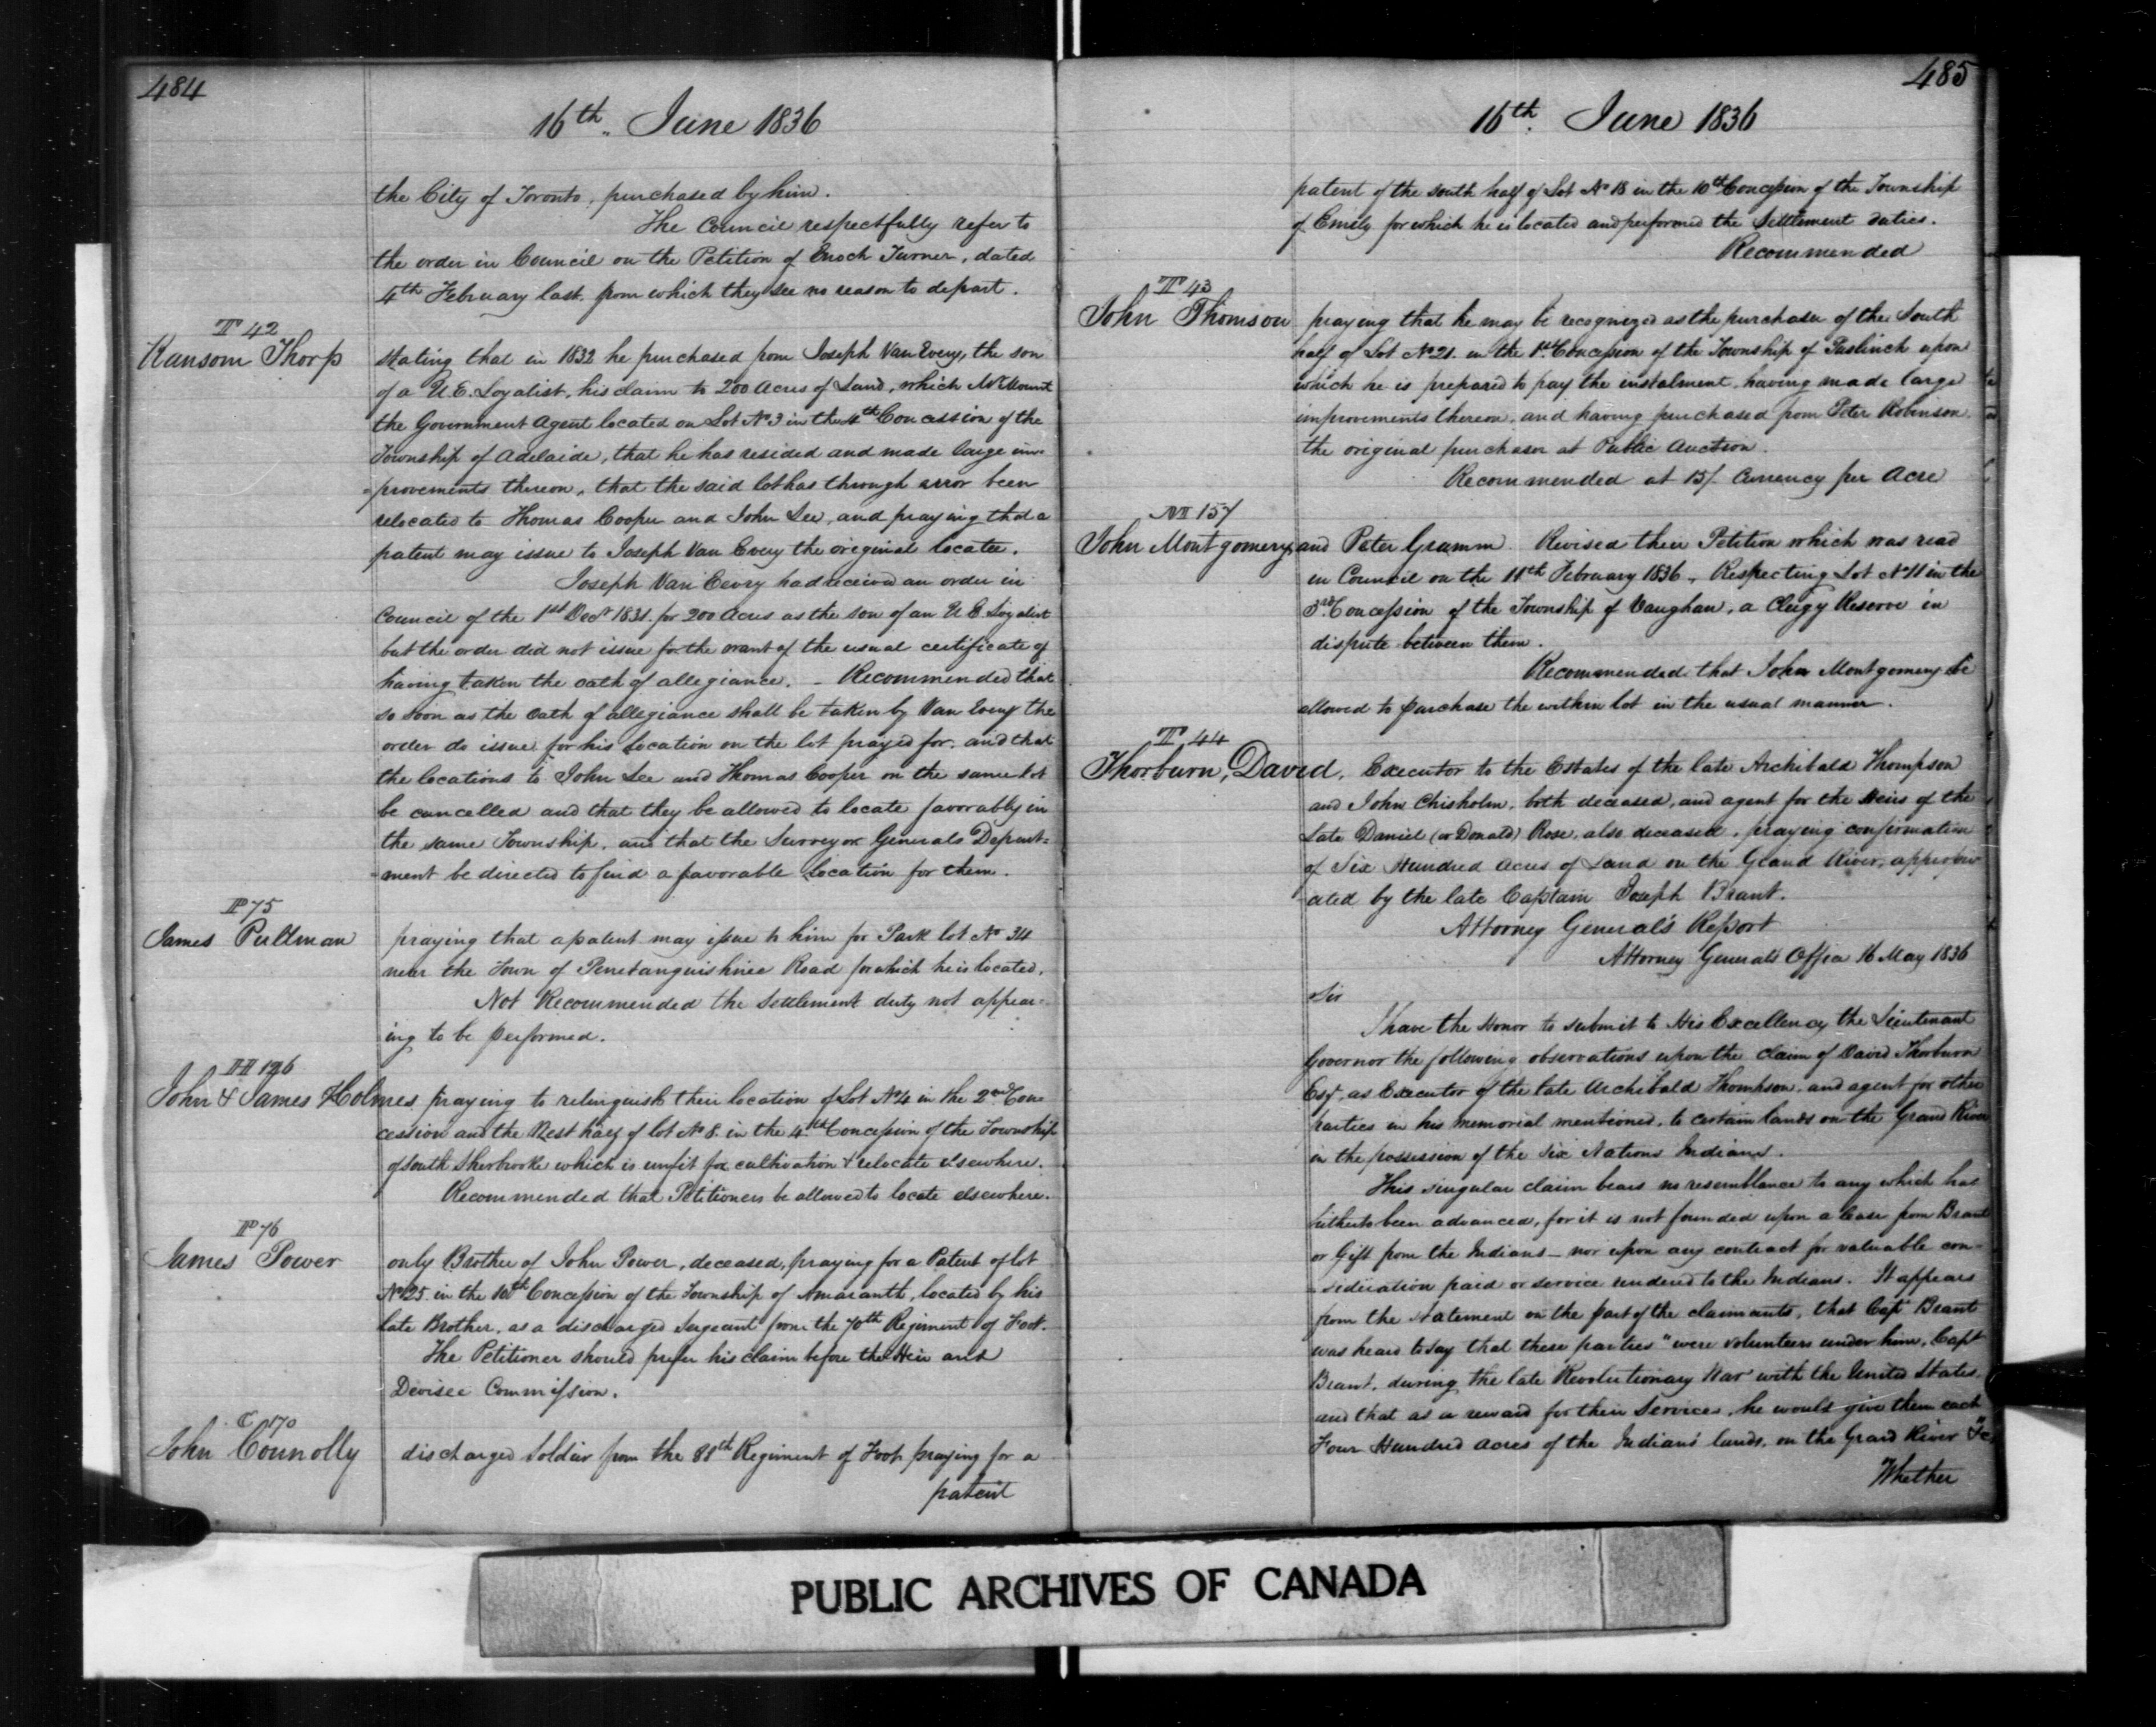 484
16th June 1836
the City of Toronto, purchased by him.
The Council respectfully refer to
the order in Council on the Petition of Enoch Turner, dated
4th February last, from which they see no reason to depart.
T 42
Ransom Thorp
stating that in 1832 he purchased from Joseph Van Every, the son
of a U.E. Loyalist, his claim to 200 Acres of Land, which Mr. Mount
the Government Agent located on Lot No 3 in the 4th Concession of the
Township of Adelaide, that he has resided and made large im=
=provements thereon, that the said lot has through error been
relocated to Thomas Cooper and John Lee, and praying that a
patent may issue to Joseph Van Every the original locatee.
Joseph Van Eevry had received an order in
Council of the 1st Decr 1831. for 200 Acres as the son of an U.E. Loyalist
but the order did not issue for the want of the usual certificate of
having taken the oath of allegiance. – Recommended that
so soon as the Oath of allegiance shall be taken by Van Every the
order do issue for his location on the lot prayed for, and that
the locations to John Lee and Thomas Cooper on the same lot
be cancelled and that they be allowed to locate favorably in
the same Township, and that the Surveyor Generals Depart=
=ment be directed to find a favorable location for them.
P 75
James Pullman
praying that a patent may issue to him for Park lot No 34
near the Town of Penetanguishine Road for which he is located.
Not Recommended the Settlement duty not appear=
ing to be performed.
H 126
John & James Holmes
praying to relinquish their location of Lot No 4 in the 2nd Con
cession and the West half of lot No 8. in the 4th Concession of the Township
of South Sherbrooke which is unfit for cultivation & relocate elsewhere.
Recommended that Petitioners be allowed to locate elsewhere.
P 76
James Power
only Brother of John Power, deceased, praying for a Patent of lot
No 25. in the 10th Concession of the Township of Amaranth, located by his
late Brother, as a discharged Sergeant from the 70th Regiment of Foot.
The Petitioner should prefer his claim before the Heir and
Devisee Commission.
C 170
John Connolly
discharged Soldier from the 88th Regiment of Foot praying for a
patent
485
16th June 1836
patent of the South half of Lot No 18 in the 10th Concession of the Township
of Emily for which he is located and performed the Settlement duties.
Recommended
T 43
John Thomson
praying that he may be recognized as the purchaser of the South
half of Lot No 21. in the 1st Concession of the Township of Puslinch upon
which he is prepared to pay the instalment, having made large
improvements thereon, and having purchased from Peter Robinson
the original purchaser at Public Auction.
Recommended at 15/ Currency per Acre
M 157
John Montgomery and Peter Gramm Revised their Petition which was read
in Council on the 11th February 1836, Respecting Lot No 11 in the
3rd Concession of the Township of Vaughan, a Clergy Reserve in
dispute between them.
Recommended that John Montgomery be
allowed to purchase the within lot in the usual manner.
T 44
Thorburn, David,
Executor to the Estates of the late Archibald Thompson
and John Chisholm, both deceased, and agent for the Heirs of the
Late Daniel (or Donald) Rose, also deceased, praying confirmation
of Six Hundred Acres of Land on the Grand River, appropri
ated by the late Captain Joseph Brant.
Attorney General's Report
Attorney Generals Office 16 May 1836
Sir
I have the Honor to submit to His Excellency the Lieutenant
Governor the following observations upon the claim of David Thorburn
Esqr. as Executor of the late Archibald Thompson, and agent for other
parties in his memorial mentioned, to certain lands on the Grand River
in the possession of the Six Nations Indians.
This singular claim bears no resemblance to any which has
hitherto been advanced, for it is not founded upon a lease from Brant
or Gift from the Indians – nor upon any contract for valuable con=
=sideration paid or service rendered to the Indians. It appears
from the statement on the part of the claimants, that Capt Brant
was heard to say that these parties "were volunteers under him, Capt
Brant, during the late Revolutionary War with the United States,
and that as a reward for their Services, he would give them each
Four Hundred Acres of the Indians' lands, on the Grand River &c"
Whether
PUBLIC ARCHIVES OF CANADA